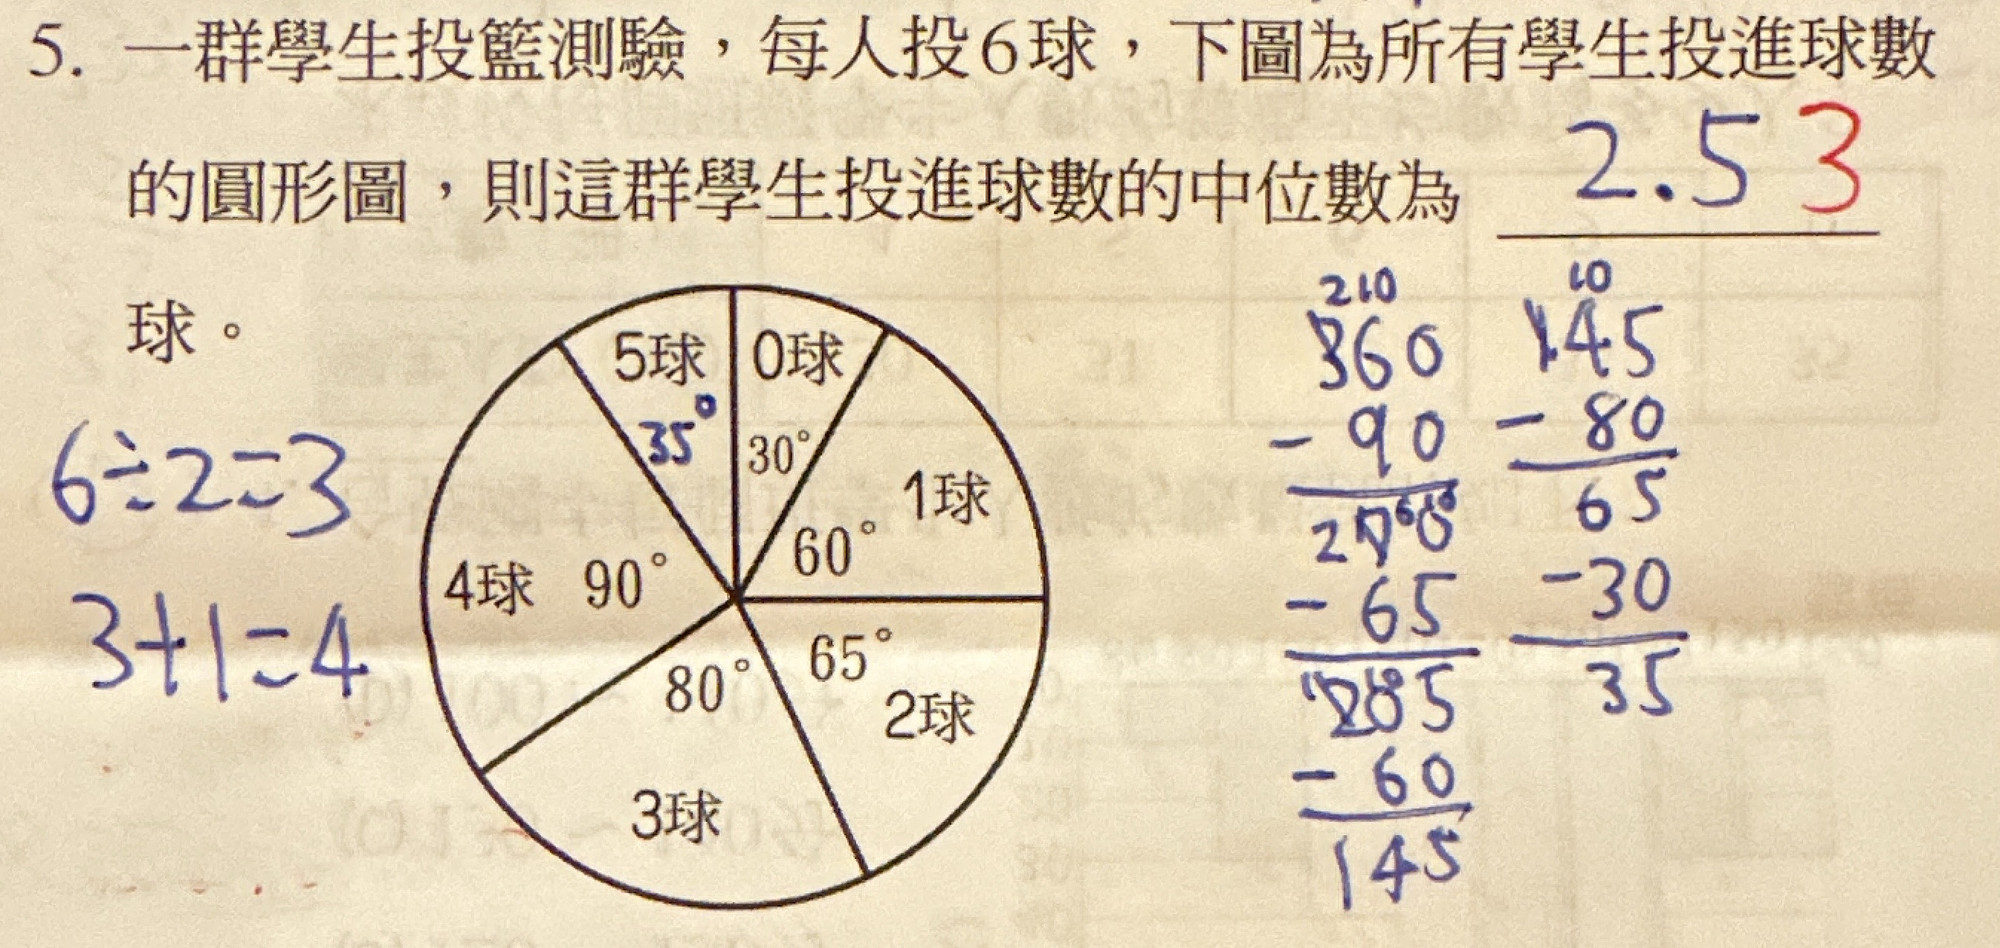 5. 一群學生投籃測驗，每人投6球，下圖為所有學生投進球數
的圓形圖，則這群學生投進球數的中位數為 2.5 3
球。
5球 0球
35° 30°
1球
60°
4球 90°
65°
2球
80°
3球
6÷2=3
3+1=4
210
360
- 90
270
- 65
205
- 60
145
10
145
- 80
65
-30
35